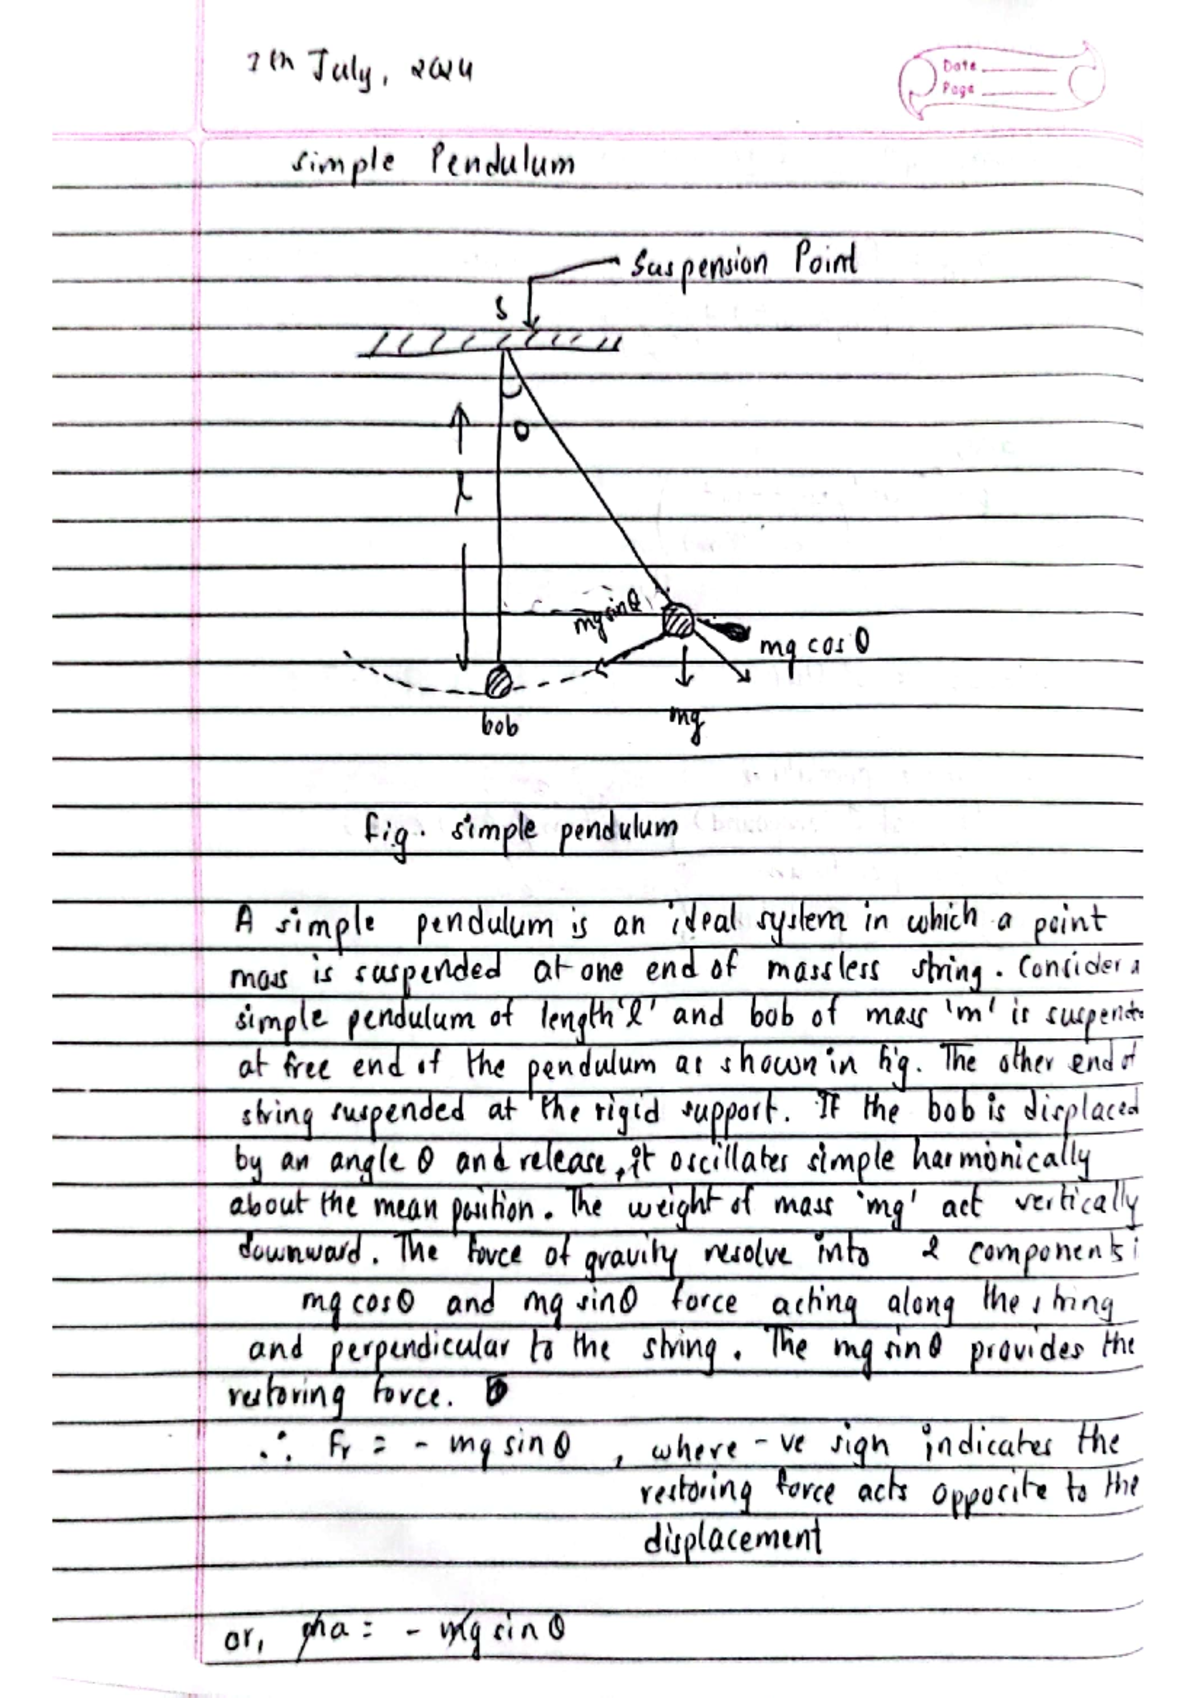 7th July, 2024
Date
Page
simple Pendulum
Suspension Point
S
θ
l
mg sinθ
mg cos θ
bob
mg
fig. simple pendulum
A simple pendulum is an ideal system in which a point
mass is suspended at one end of massless string. Consider a
simple pendulum of length 'l' and bob of mass 'm' is suspende
at free end of the pendulum as shown in fig. The other end of
string suspended at the rigid support. If the bob is displaced
by an angle θ and release, it oscillates simple harmonically
about the mean position. The weight of mass 'mg' act vertically
downward. The force of gravity resolve into 2 components i
mg cosθ and mg sinθ force acting along the string
and perpendicular to the string. The mg sinθ provides the
restoring force.
∴ Fr = - mg sin θ , where -ve sign indicates the
restoring force acts opposite to the
displacement
or, ma = - mg sin θ